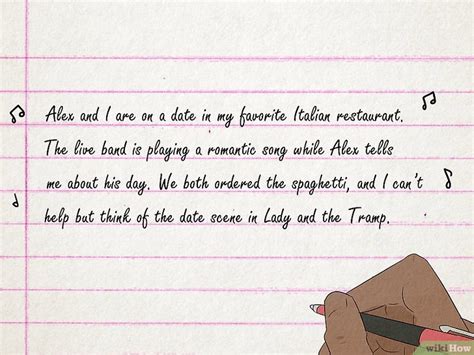 Alex and I are on a date in my favorite Italian restaurant.
The live band is playing a romantic song while Alex tells
me about his day. We both ordered the spaghetti, and I can't
help but think of the date scene in Lady and the Tramp.
wikiHow